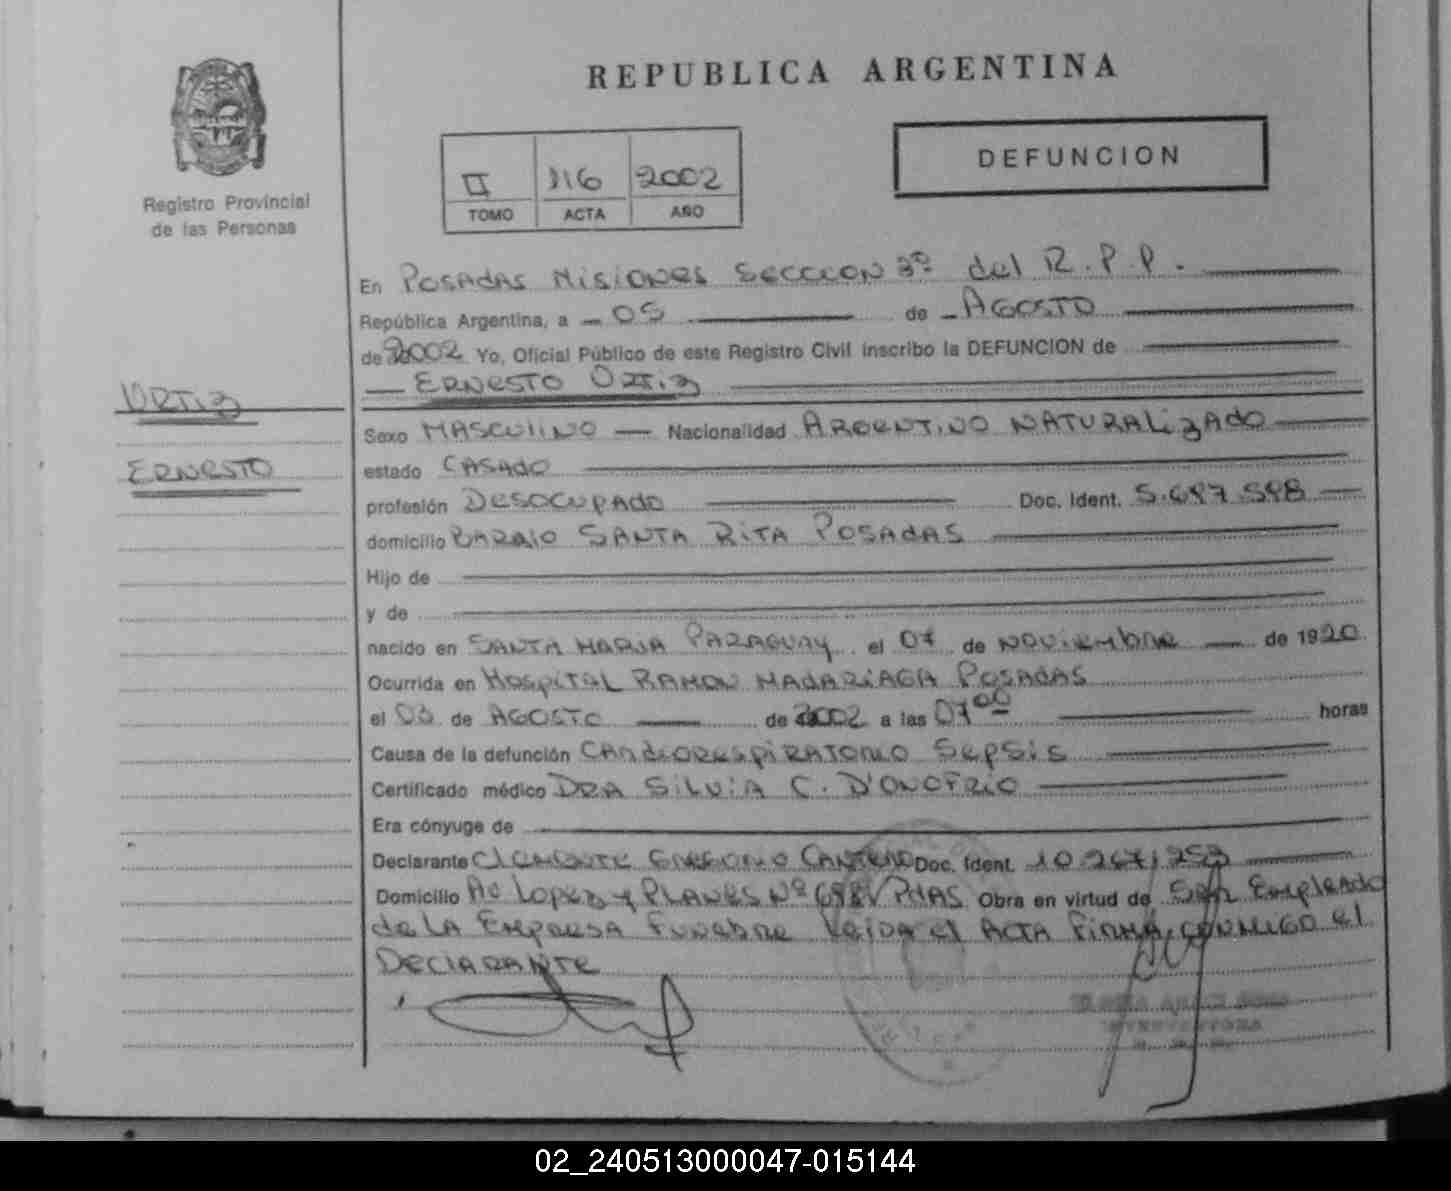 REPUBLICA ARGENTINA
DEFUNCION
II 116 2002
TOMO ACTA AÑO
Registro Provincial
de las Personas
En Posadas Misiones Seccion 3º del R.P.P.
República Argentina, a 05 de Agosto
de 2002 Yo, Oficial Público de este Registro Civil inscribo la DEFUNCION de
Ernesto Ortiz
Ortiz
Ernesto
Sexo Masculino Nacionalidad Argentino Naturalizado
estado Casado
profesión Desocupado Doc. Ident.
domicilio Barrio Santa Rita Posadas
Hijo de
y de
nacido en Santa Maria Paraguay el 07 de Noviembre de 1920
Ocurrida en Hospital Ramon Madariaga Posadas
el 03 de Agosto de 2002 a las 07 00 horas
Causa de la defunción Cardiorespiratorio Sepsis
Certificado médico Dra Silvia C. D'Onofrio
Era cónyuge de
Declarante Clemente Gregorio Cantero Doc. Ident. 10.267.253
Domicilio Av Lopez y Planes Nº Pdas Obra en virtud de Ser Empleado
de la Empresa Funebre Leida el Acta Firma conmigo el
Declarante
02_240513000047-015144